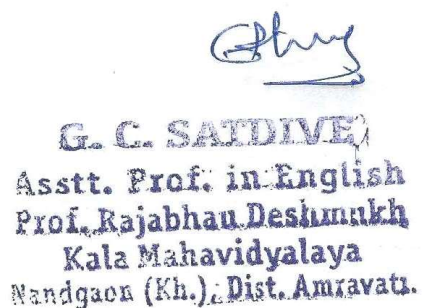 G. C. SATDIVE
Asstt. Prof. in English
Prof. Rajabhau Deshmukh
Kala Mahavidyalaya
Nandgaon (Kh.), Dist. Amravati.